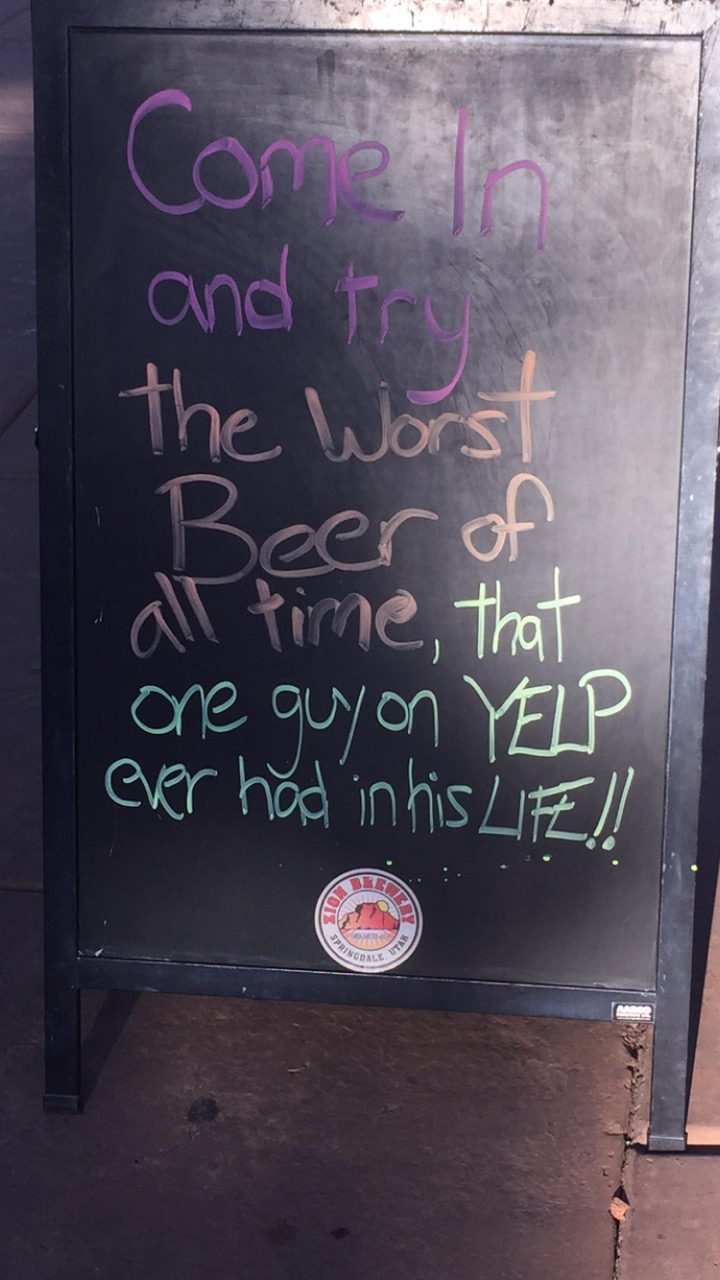 Come In
and try
the Worst
Beer of
all time, that
one guy on YELP
ever had in his LIFE!!
ZION BREWERY
SPRINGDALE, UTAH